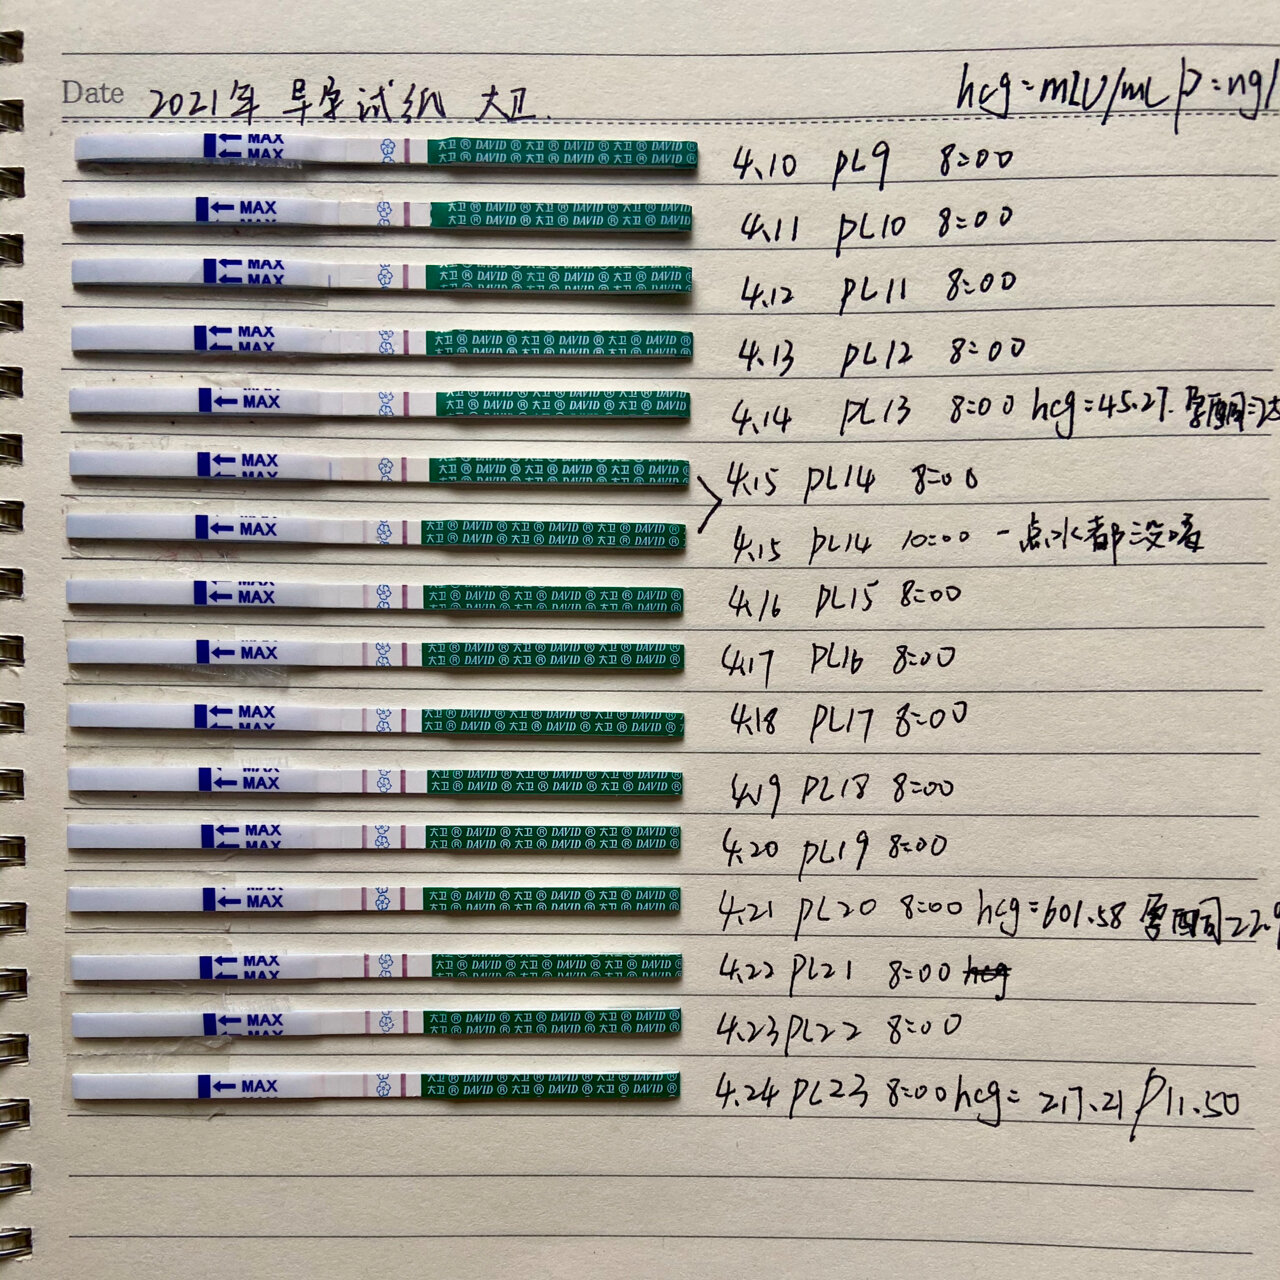 Date 2021年 早孕试纸 大卫. hcg=mIU/mL P=ng/
MAX MAX 大卫 ® DAVID ® 大卫 ® DAVID ® 大卫 ® DAVID ® 4.10 PL9 8:00
MAX 大卫 ® DAVID ® 大卫 ® DAVID ® 大卫 ® DAVID 4.11 PL10 8:00
MAX MAX 大卫 ® DAVID ® 大卫 ® DAVID ® 大卫 ® DAVID 4.12 PL11 8:00
MAX MAX 大卫 ® DAVID ® 大卫 ® DAVID ® 大卫 ® DAVID 4.13 PL12 8:00
MAX 大卫 ® DAVID ® 大卫 ® DAVID ® 大卫 ® DAVID 4.14 PL13 8:00 hcg=45.27. 孕酮=25
MAX MAX 大卫 ® DAVID ® 大卫 ® DAVID ® 大卫 ® DAVID 4.15 PL14 8:00
MAX MAX 大卫 ® DAVID ® 大卫 ® DAVID ® 大卫 ® DAVID ® 4.15 PL14 10:00 一点水都没喝
MAX MAX 大卫 ® DAVID ® 大卫 ® DAVID ® 大卫 ® DAVID ® 4.16 PL15 8:00
MAX 大卫 ® DAVID ® 大卫 ® DAVID ® 大卫 ® DAVID ® 4.17 PL16 8:00
MAX MAX 大卫 ® DAVID ® 大卫 ® DAVID ® 大卫 ® DAVID ® 4.18 PL17 8:00
MAX MAX 大卫 ® DAVID ® 大卫 ® DAVID ® 大卫 ® DAVID ® 4.19 PL18 8:00
MAX MAX 大卫 ® DAVID ® 大卫 ® DAVID ® 大卫 ® DAVID ® 4.20 PL19 8:00
MAX MAX 大卫 ® DAVID ® 大卫 ® DAVID ® 大卫 ® DAVID ® 4.21 PL20 8:00 hcg=601.58 孕酮=22.9
MAX MAX 大卫 ® DAVID ® 大卫 ® DAVID ® 大卫 ® DAVID ® 4.22 PL21 8:00 hcg
MAX MAX 大卫 ® DAVID ® 大卫 ® DAVID ® 大卫 ® DAVID ® 4.23 PL22 8:00
MAX 大卫 ® DAVID ® 大卫 ® DAVID ® 大卫 ® DAVID ® 4.24 PL23 8:00 hcg= 217.21 P11.50